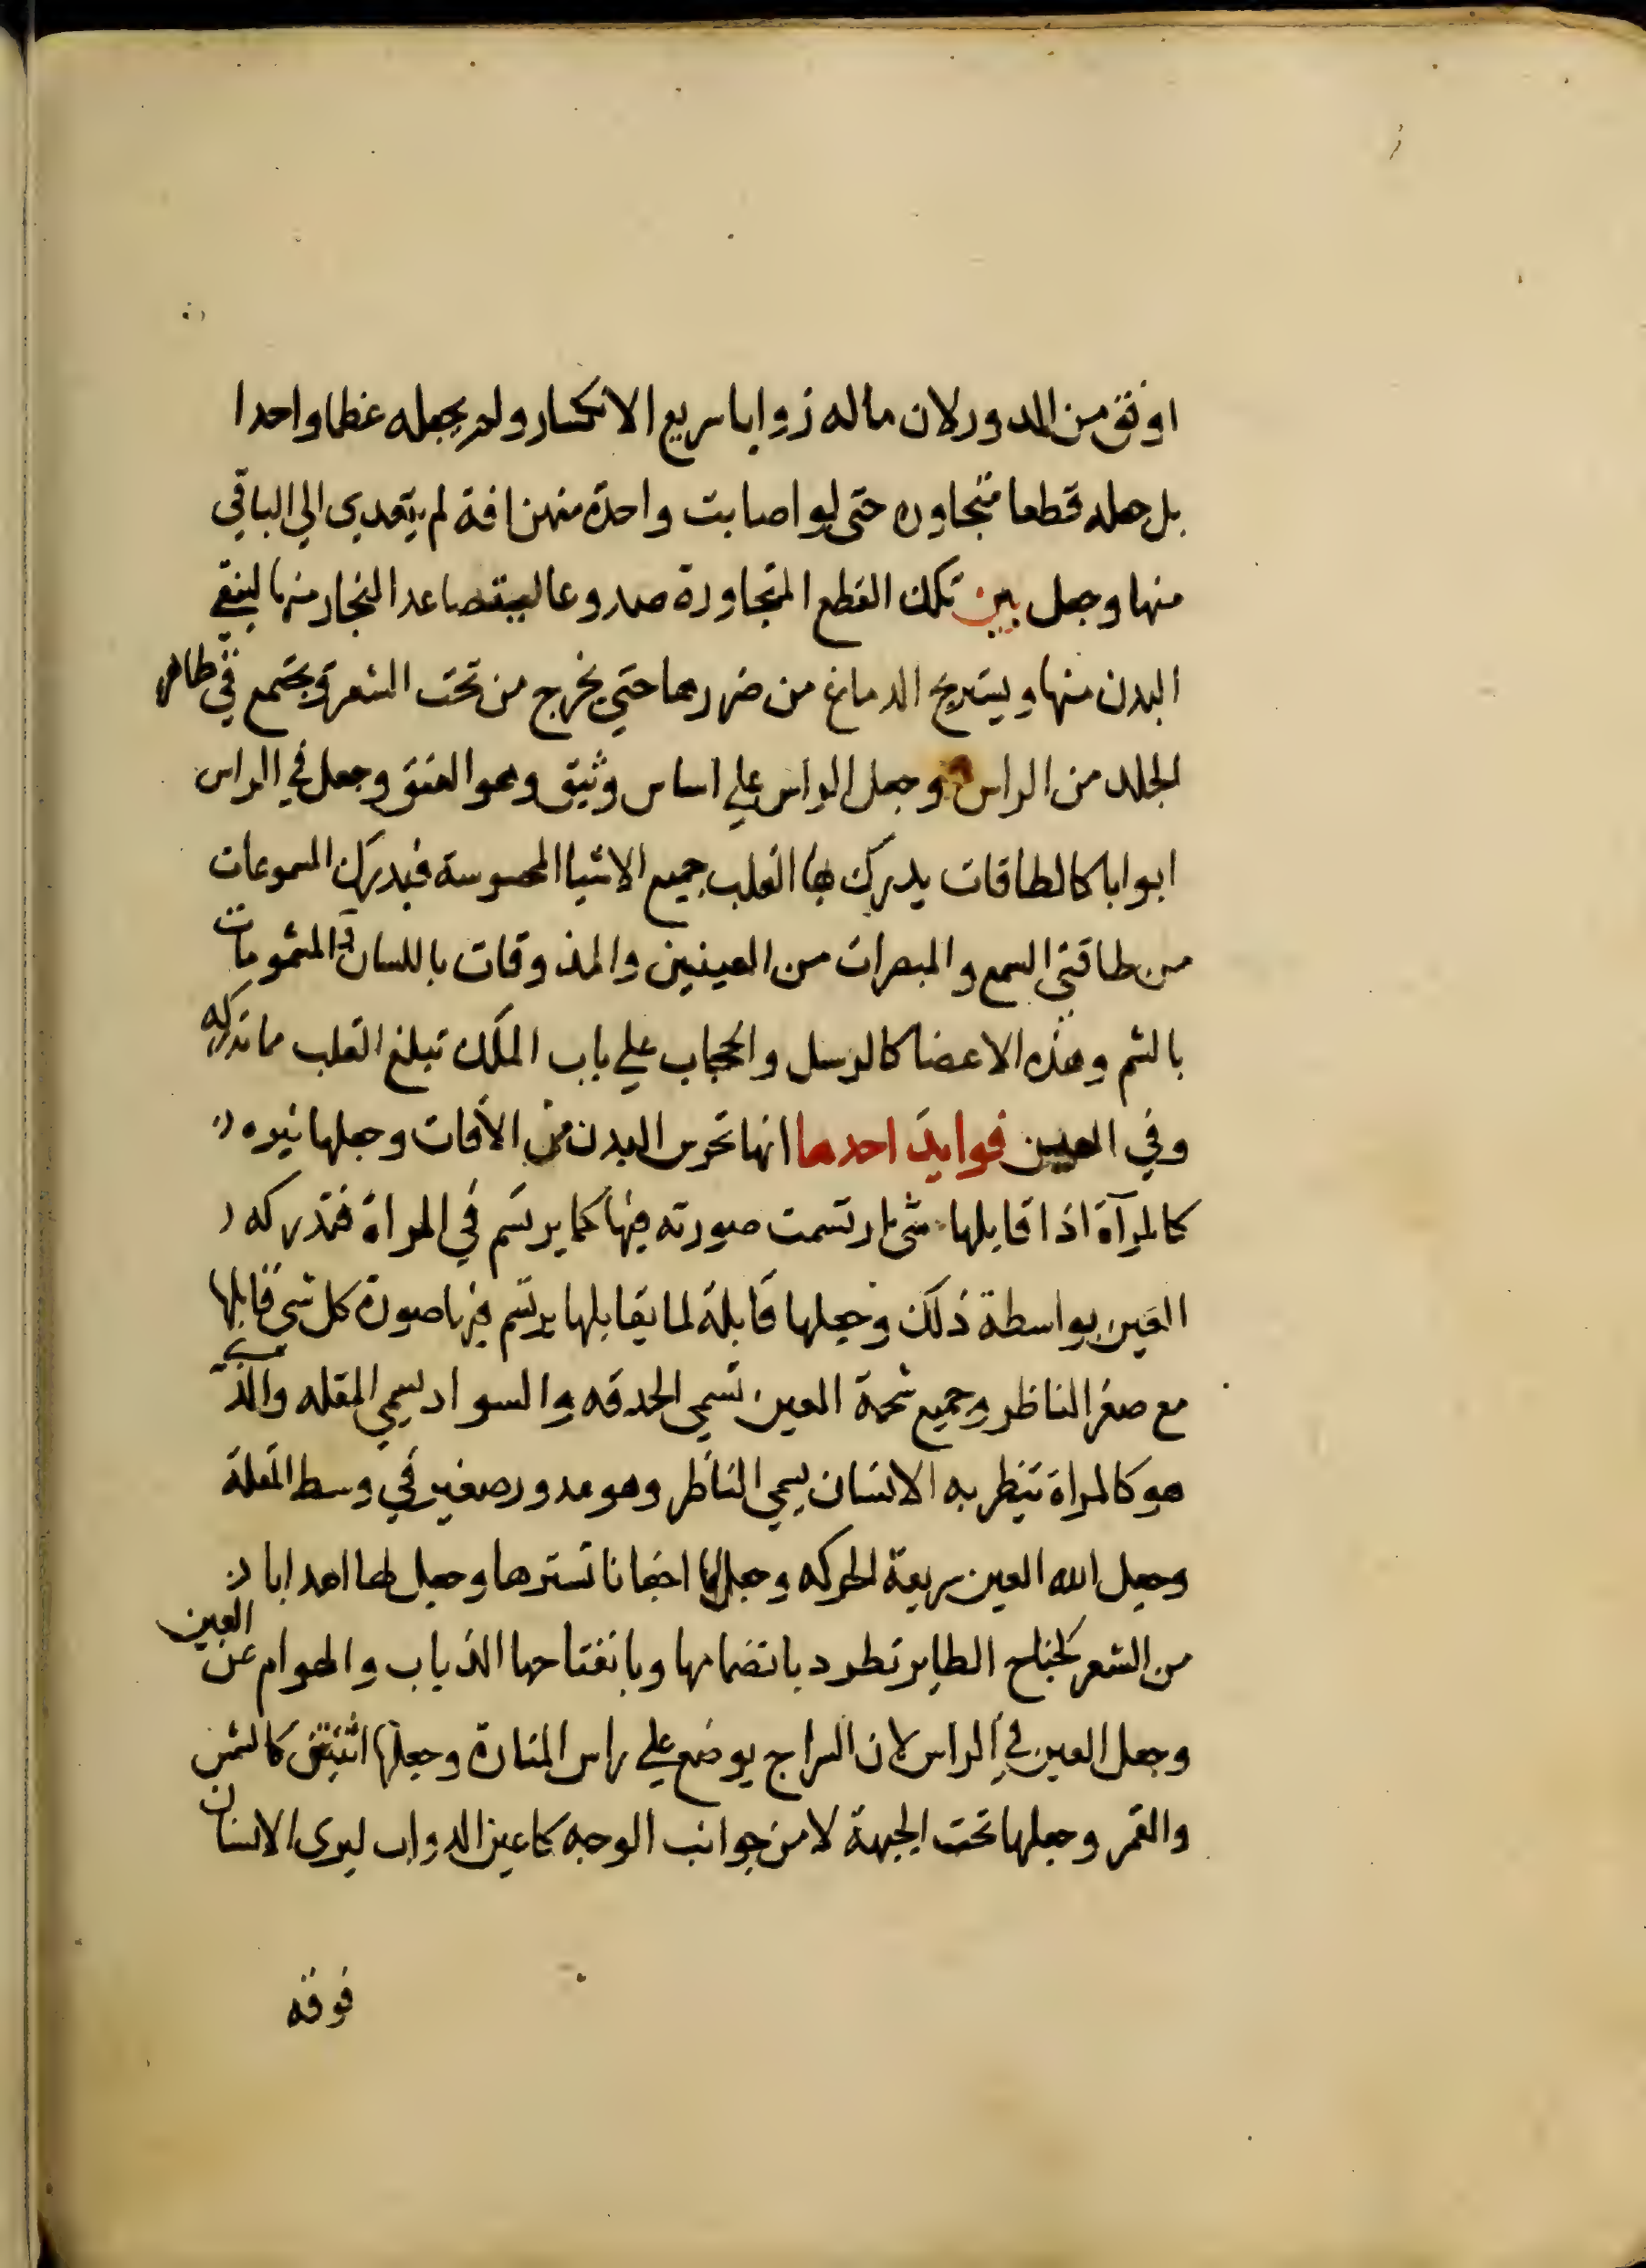 اوثق من المدور لان ماله زوايا سريع الانكسار ولم يجعله عظما واحدا
بل جعله قطعا متجاوره حتى لو اصابت واحدة منهن افة لم يتعدي الي الباقي
منها وجعل بين تلك القطع المتجاورة صدوعا ليتصاعد البخار منها لينقي
البدن منها ويستريح الدماغ من ضررها حتي يخرج من تحت الشعر ويجتمع في ظاهر
الجلد من الراس وجعل الراس علي اساس وثيق وهو العنق وجعل في الراس
ابوابا كالطاقات يدرك بها القلب جميع الاشيا المحسوسة فيدرك المسموعات
من طاقتي السمع والمبصرات من العينين والمذوقات باللسان والمشمومات
بالشم وهذه الاعضا كالرسل والحجاب علي باب الملك تبلغ القلب ما تدركه
وفي العين فوايد احدها انها تحرس البدن من الآفات وجعلها نيره
كالمرآة اذا قابلها شئ ارتسمت صورته فيها كما يرتسم في المراة فتدركه
العين بواسطة ذلك وجعلها قابلة لما يقابلها يرتسم فيها صورة كل شي قابلها
مع صغر الناظر وجميع شحمة العين تسمي الحدقه والسواد يسمي المقله والذي
هو كالمراة تنظر به الانسان يسمي الناظر وهو مدور صغير في وسط المقلة
وجعل الله العين سريعة الحركه وجعل لها اجفانا تسترها وجعل لها اهدابا
من الشعر كجناح الطاير تطرد بانضمامها وبانفتاحها الذباب والهوام عن العين
وجعل العين في الراس لان السراج يوضع علي راس المنارة وجعلها اثنتين كالشمس
والقمر وجعلها تحت الجبهة لا من جوانب الوجه كاعين الدواب ليرى الانسان
فوقه